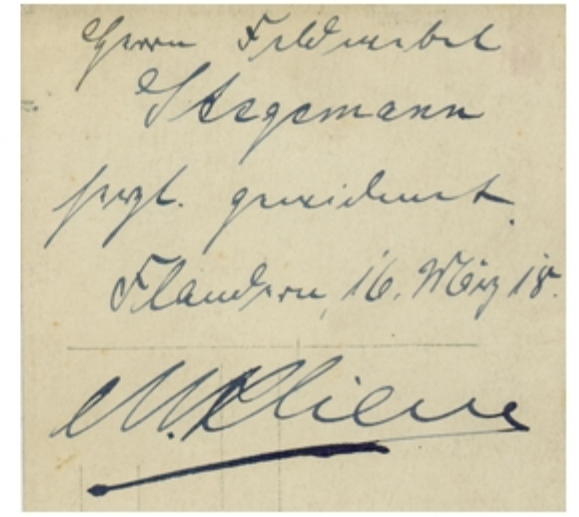 Herrn Feldwebel
Stegemann
frzl. gewidmet.
Flandern, 16. März 18.
M.